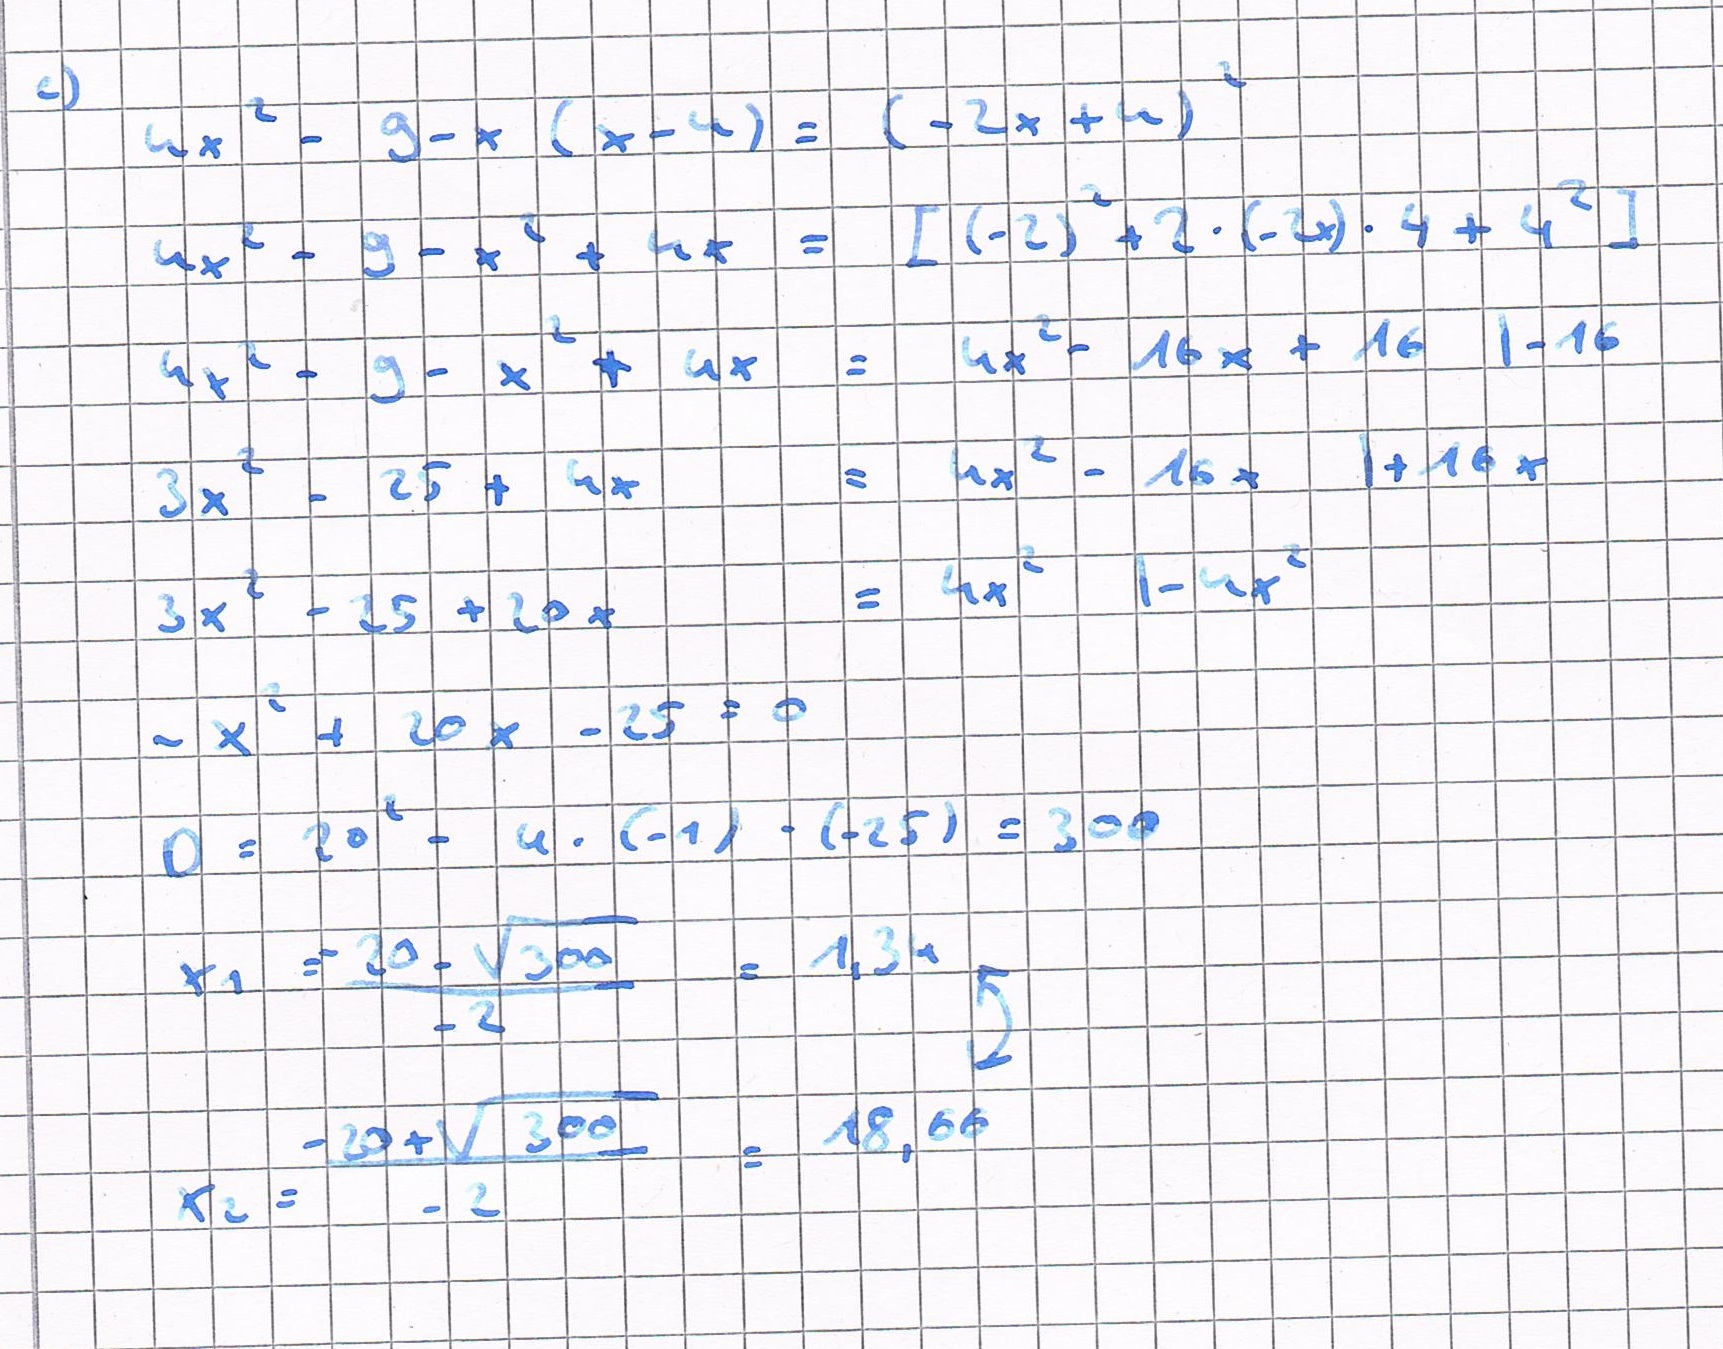 c)
4x² - 9 - x (x - 4) = (-2x + 4)²
4x² - 9 - x² + 4x = [(-2)² + 2 · (-2x) · 4 + 4²]
4x² - 9 - x² + 4x = 4x² - 16x + 16 | - 16
3x² - 25 + 4x = 4x² - 16x | + 16x
3x² - 25 + 20x = 4x² | - 4x²
- x² + 20x - 25 = 0
D = 20² - 4 · (-1) · (-25) = 300
x₁ = (-20 - √300) / -2 = 1,34
x₂ = (-20 + √300) / -2 = 18,66